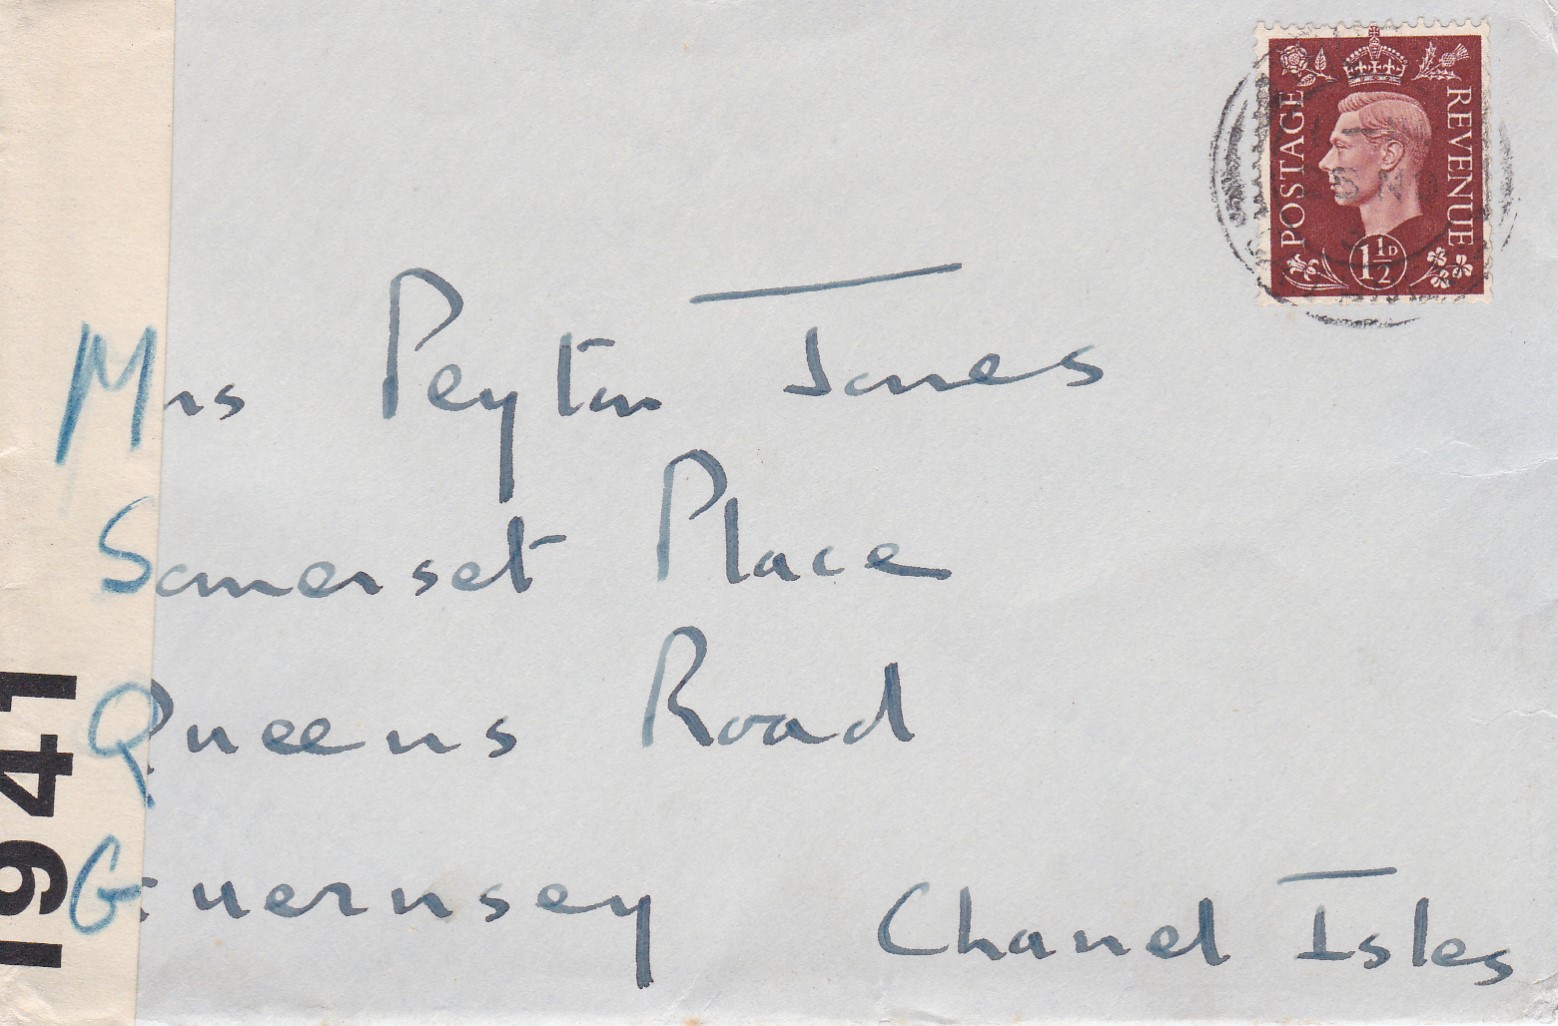 POSTAGE
REVENUE
1½D
Mrs Peyton Jones
Somerset Place
Queens Road
Guernsey Chanel Isles
1941